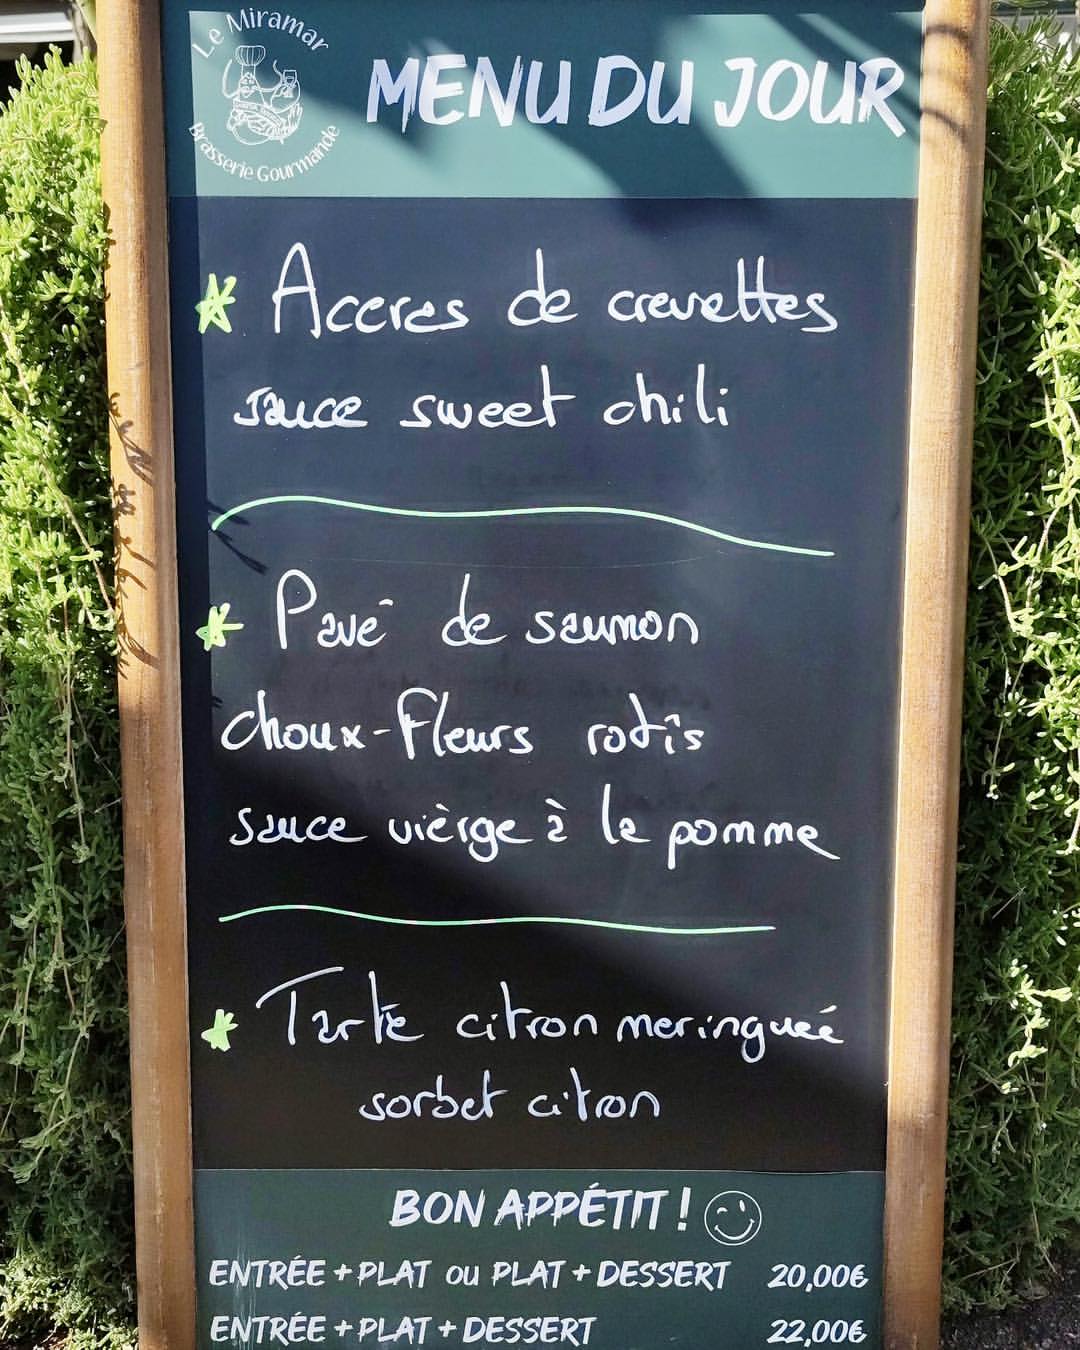 Le Miramar
Brasserie Gourmande
MENU DU JOUR
* Acceras de crevettes
sauce sweet chili
* Pavé de saumon
choux-fleurs rotîs
sauce vièrge à la pomme
* Tarte citron meringueé
sorbet citron
BON APPÉTIT !
ENTRÉE + PLAT OU PLAT + DESSERT 20,00€
ENTRÉE + PLAT + DESSERT 22,00€